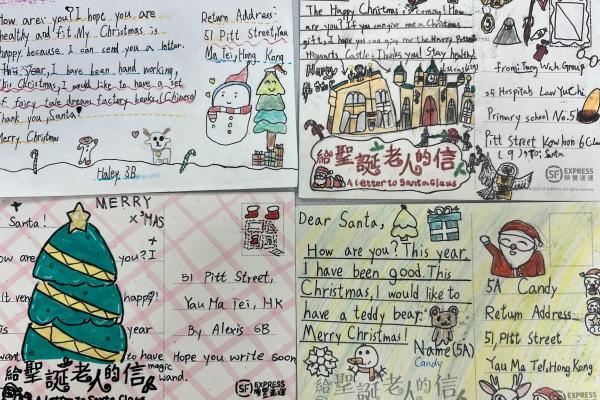 How are you? I hope you are
healthy and fit. My Christmas is
happy because I can send you a letter.
This year, I have been hand working,
this Christmas, I would like to have a set
of fairy tale dream factory books (Chinese)
Thank you, Santa!
Merry Christmas
Haley 3B
Return Address:
51 Pitt Street, Yau
Ma Tei, Hong Kong
The Happy Christmas is coming! How
are you? If you can give me a Christmas
gift, I hope you can give me the Harry Potter
Hogwarts Castle. Thanks you! Stay healthy
Happy
給聖誕老人的信
A Letter to Santa Claus
from: Tung Wah Group
Of Hospitals Law Yu Chi
Primary school No.51
Pitt Street Kowloon
Santa
SF EXPRESS
順豐速運
MERRY
X'MAS
Santa!
you? I
happy!
year
want
to have
magic
wand.
給聖誕老人的信
A Letter to Santa Claus
51 Pitt Street,
Yau Ma Tei, HK
By Alexis 6B
Hope you write soon
SF EXPRESS
順豐速運
Dear Santa,
How are you? This year,
I have been good. This
Christmas, I would like to
have a teddy bear.
Merry Christmas!
Name (5A)
Candy
給聖誕老人的信
5A Candy
Return Address:
51, Pitt Street
Yau Ma Tei, Hong Kong
SF EXPRESS